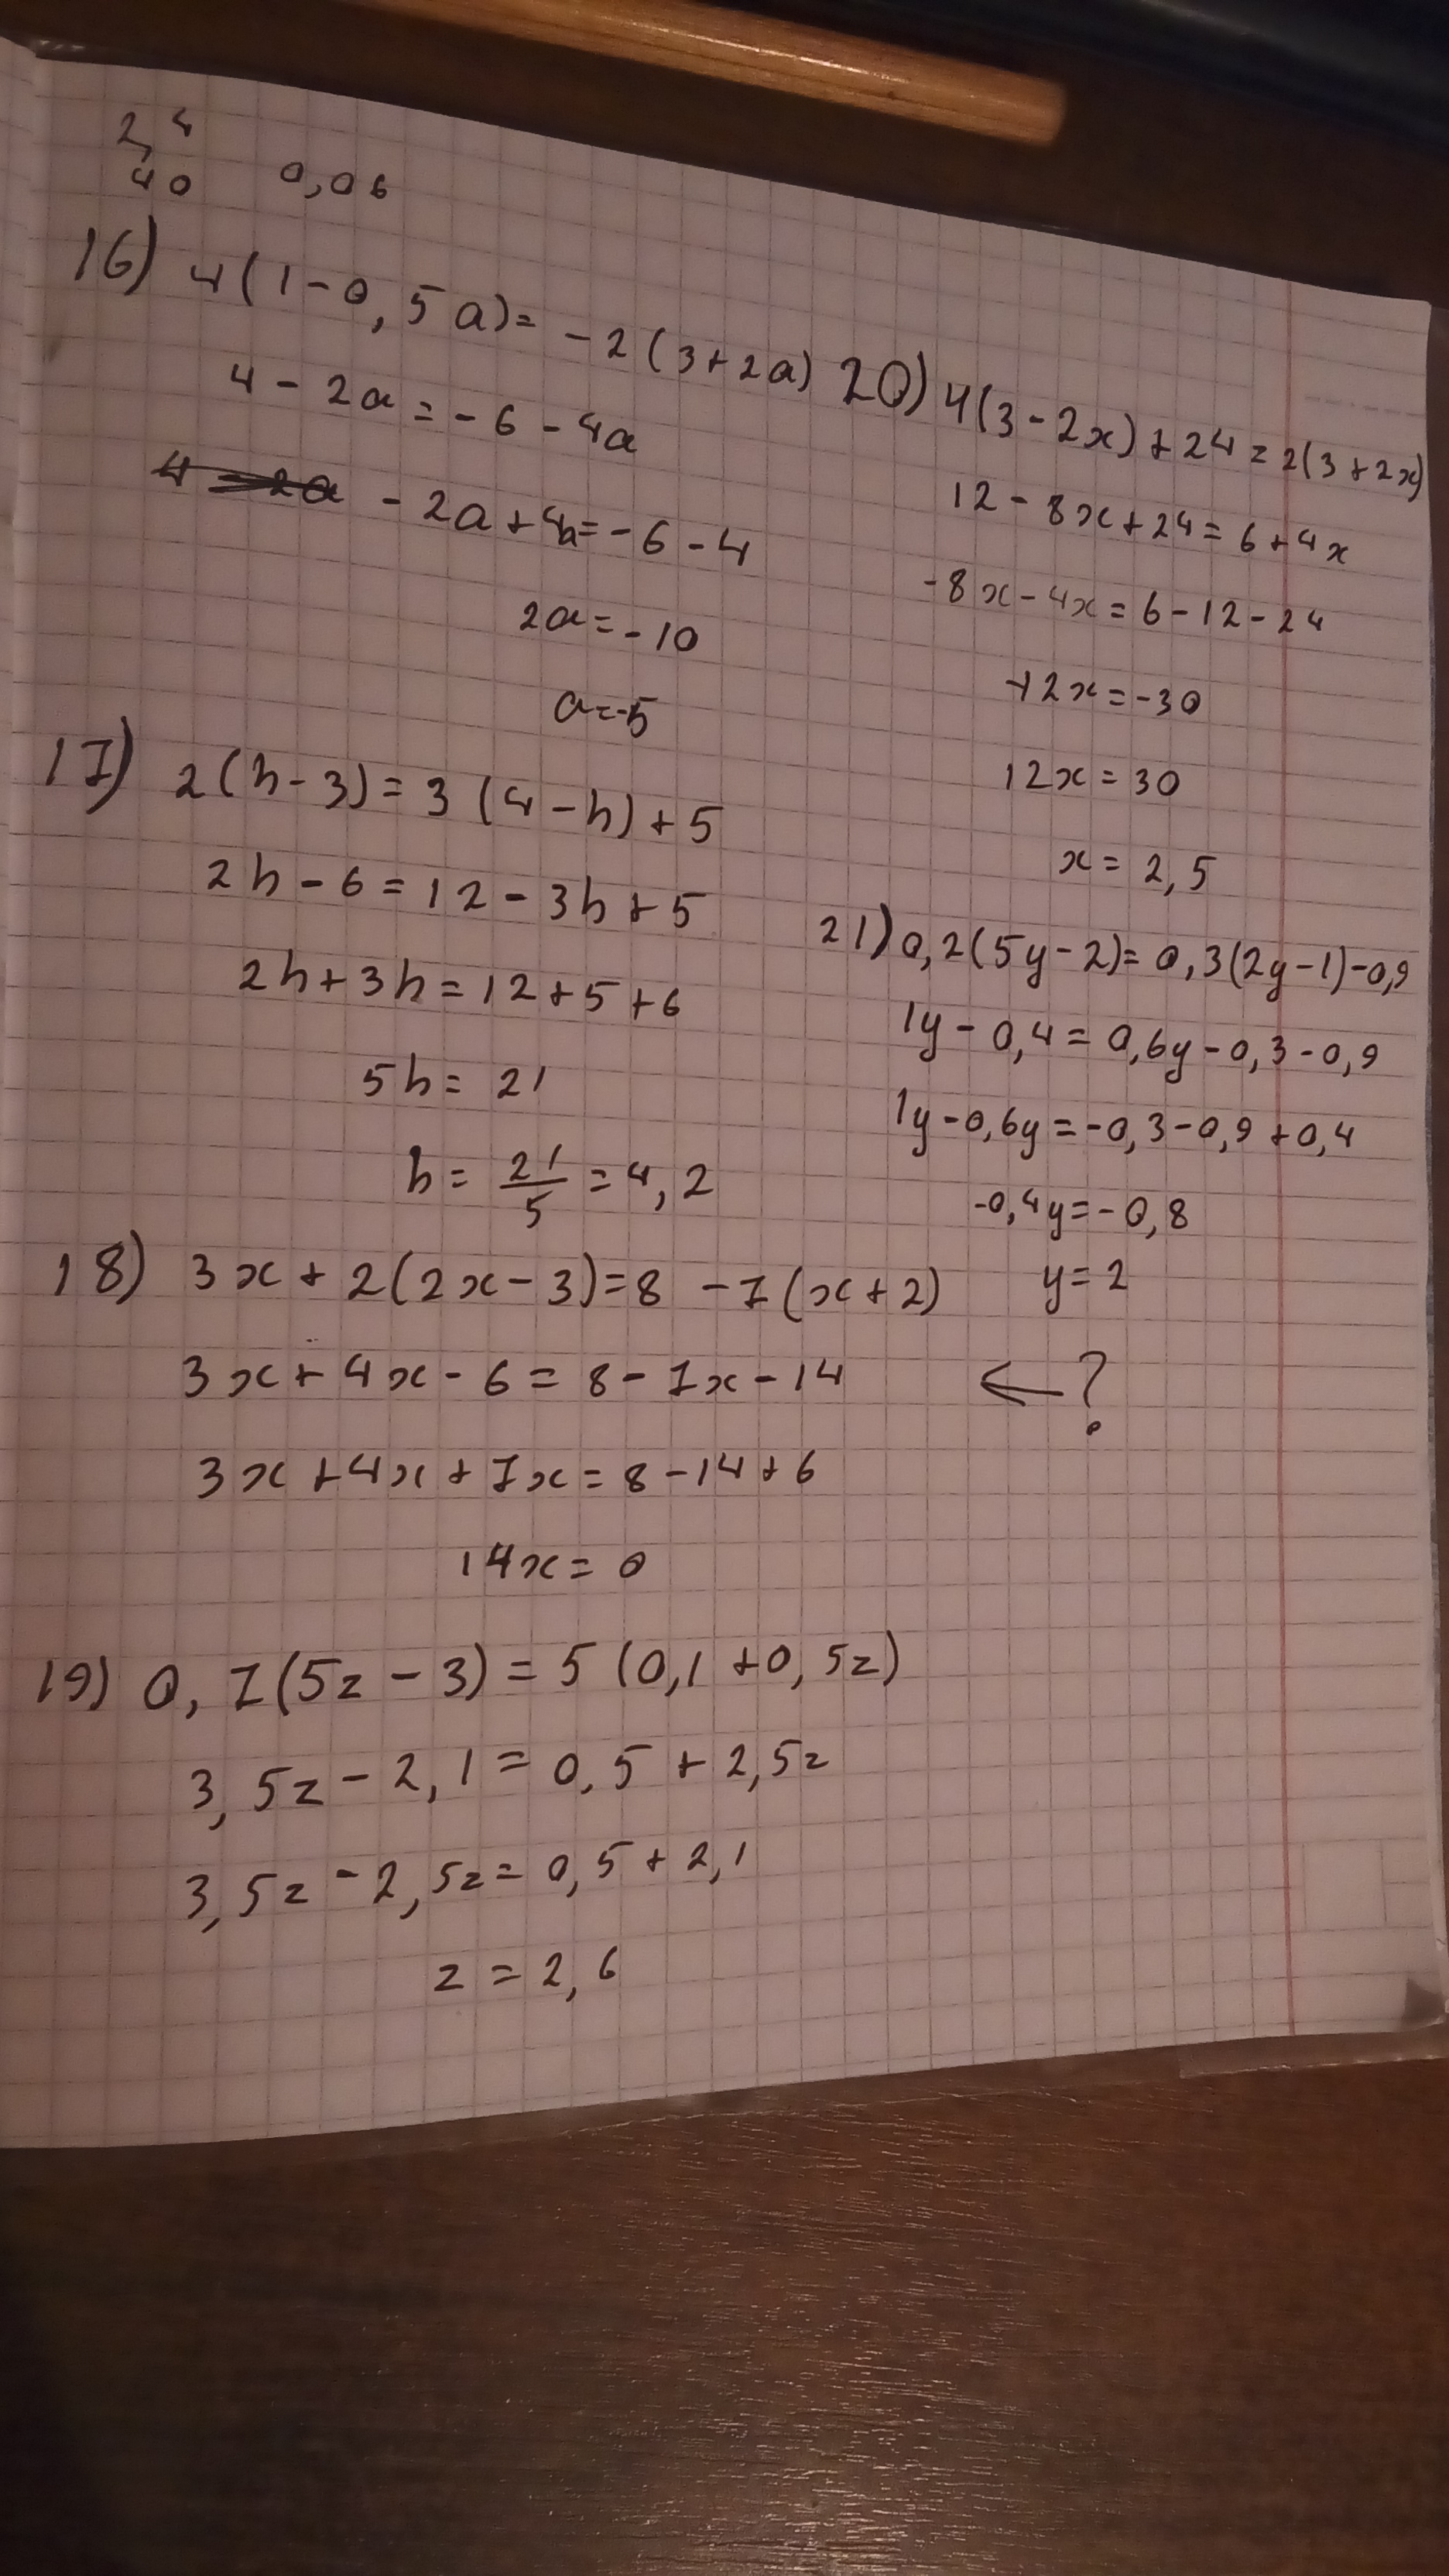 2,4
40 0,06
16) 4(1-0,5a)= -2(3+2a)
4-2a=-6-4a
4-2a -2a+4a=-6-4
2a=-10
a=-5
17) 2(h-3)=3(4-h)+5
2h-6=12-3h+5
2h+3h=12+5+6
5h=21
h=21/5=4,2
18) 3x+2(2x-3)=8-7(x+2)
3x+4x-6=8-7x-14
3x+4x+7x=8-14+6
14x=0
19) 0,7(5z-3)=5(0,1+0,5z)
3,5z-2,1=0,5+2,5z
3,5z-2,5z=0,5+2,1
z=2,6
20) 4(3-2x)+24=2(3+2x)
12-8x+24=6+4x
-8x-4x=6-12-24
-12x=-30
12x=30
x=2,5
21) 0,2(5y-2)=0,3(2y-1)-0,9
1y-0,4=0,6y-0,3-0,9
1y-0,6y=-0,3-0,9+0,4
-0,4y=-0,8
y=2
←?